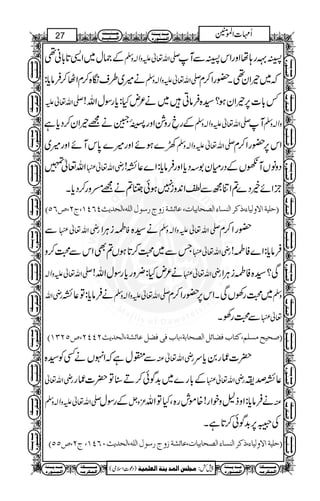 27
اُمہات المؤمنین
پسینہ بہہ رہا تھا اور اس پسینے سے آپ صلی اللہ تعالیٰ علیہ واٰلہ وسلم کے جمال میں ایسی تابانی تھی
کہ میں حیران تھی۔ حضور اکرم صلی اللہ تعالیٰ علیہ واٰلہ وسلم نے میری طرف نگاہ کرم اٹھا کر فرمایا:
کس بات پر حیران ہو؟ سیدہ فرماتی ہیں میں نے عرض کیا: یارسول اللہ! صلی اللہ تعالیٰ علیہ
واٰلہ وسلم آپ صلی اللہ تعالیٰ علیہ واٰلہ وسلم کے رخِ روشن اور پسینۂ جبین نے مجھے حیران کر دیا ہے
اس پر حضور اکرم صلی اللہ تعالیٰ علیہ واٰلہ وسلم کھڑے ہوئے اور میرے پاس آئے اور میری
دونوں آنکھوں کے درمیان بوسہ دیا اور فرمایا: اے عائشہ! رضی اللہ تعالیٰ عنہا اللہ تعالیٰ تمہیں
جزائے خیر دے تم اتنا مجھ سے لطف اندوز نہیں ہوئی جتنا تم نے مجھے مسرور کر دیا۔
(حلیۃ الاولیاء،ذکر النساء الصحابیات،عائشۃ زوج رسول اللہ،الحدیث١٤٦٤،ج٢،ص٥٦)
حضور اکرم صلی اللہ تعالیٰ علیہ واٰلہ وسلم نے سیدہ فاطمہ زہرا رضی اللہ تعالیٰ عنہا سے
فرمایا: اے فاطمہ! رضی اللہ تعالیٰ عنہا جس سے میں محبت کرتا ہوں تم بھی اس سے محبت کرو
گی؟ سیدہ فاطمہ زہرا رضی اللہ تعالیٰ عنہا نے عرض کیا: ضرور یارسول اللہ! صلی اللہ تعالیٰ علیہ واٰلہ
وسلم میں محبت رکھوں گی۔ اس پر حضور اکرم صلی اللہ تعالیٰ علیہ واٰلہ وسلم نے فرمایا: تو عائشہ رضی اللہ
تعالیٰ عنہا سے محبت رکھو۔
(صحیح مسلم،کتاب فضائل الصحابۃ،باب فی فضل عائشۃ،الحدیث٢٤٤٢،ص١٣٢٥)
حضرت عمار بن یاسر رضی اللہ تعالیٰ عنہ سے منقول ہے کہ انہوں نے کسی کو سیدہ
عائشہ صدیقہ رضی اللہ تعالیٰ عنہا کے بارے میں بدگوئی کرتے سنا تو حضرت عمار رضی اللہ تعالیٰ
عنہ نے فرمایا: او ذلیل و خوار! خاموش رہ، کیا تو اللہ عزوجل کے رسول صلی اللہ تعالیٰ علیہ واٰلہ وسلم
کی حبیبہ پر بدگوئی کرتا ہے۔
(حلیۃ الاولیاء،ذکر النساء الصحابیات،عائشۃ زوج رسول اللہ،الحدیث١٤٦٠،ج٢،ص٥٥)
پیش کش: مجلس المدینۃ العلمیۃ (دعوتِ اسلامی)